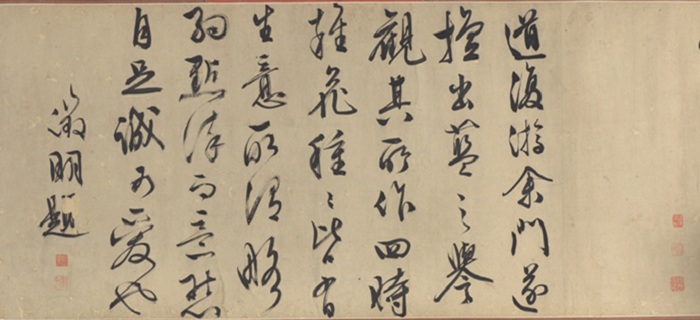 道復游余門遂
擅出藍之譽
觀其所作四時
雜花種種皆有
生意所謂略
約點染而意態
自足誠可愛也
徵明題